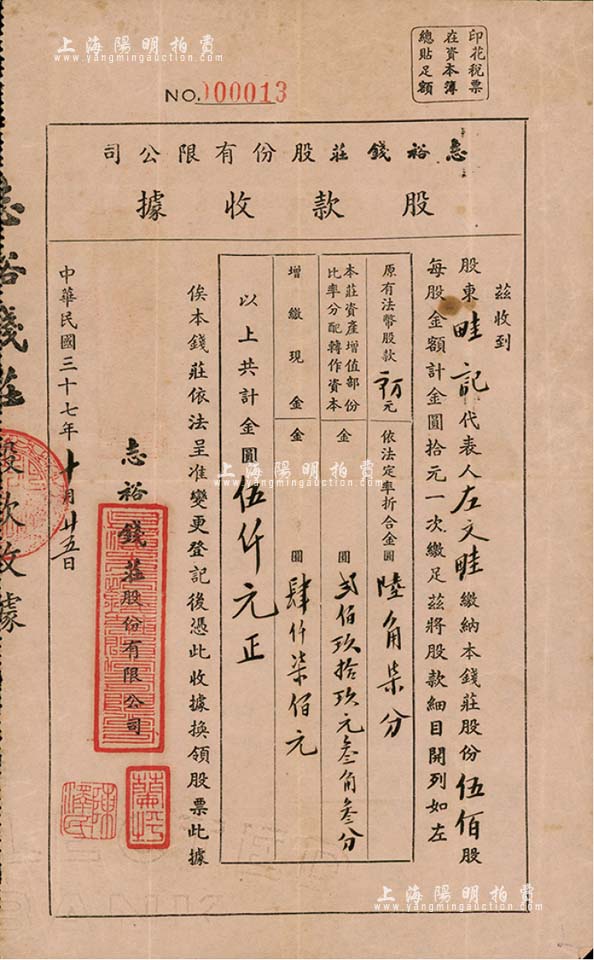 上海陽明拍賣
www.yangmingauction.com
印花稅票
在資本簿
總貼足額
NO. 000013
志裕錢莊股份有限公司
股款收據
茲收到
股東畦記代表人左文畦繳納本錢莊股份伍佰股
每股金額計金圓拾元一次繳足茲將股款細目開列如左
原有法幣股款 元 依法定率折合金圓 陸角柒分
本莊資產增值部份
比率分配轉作資本
金 圓 弍佰玖拾玖元叁角叁分
增繳現金 金 圓 肆仟柒佰元
以上共計金圓伍仟元正
俟本錢莊依法呈准變更登記後憑此收據換領股票此據
志裕錢莊股份有限公司
中華民國三十七年十月廿五日
志裕錢莊股款收據
上海陽明拍賣
www.yangmingauction.com
上海陽明拍賣
www.yangmingauction.com